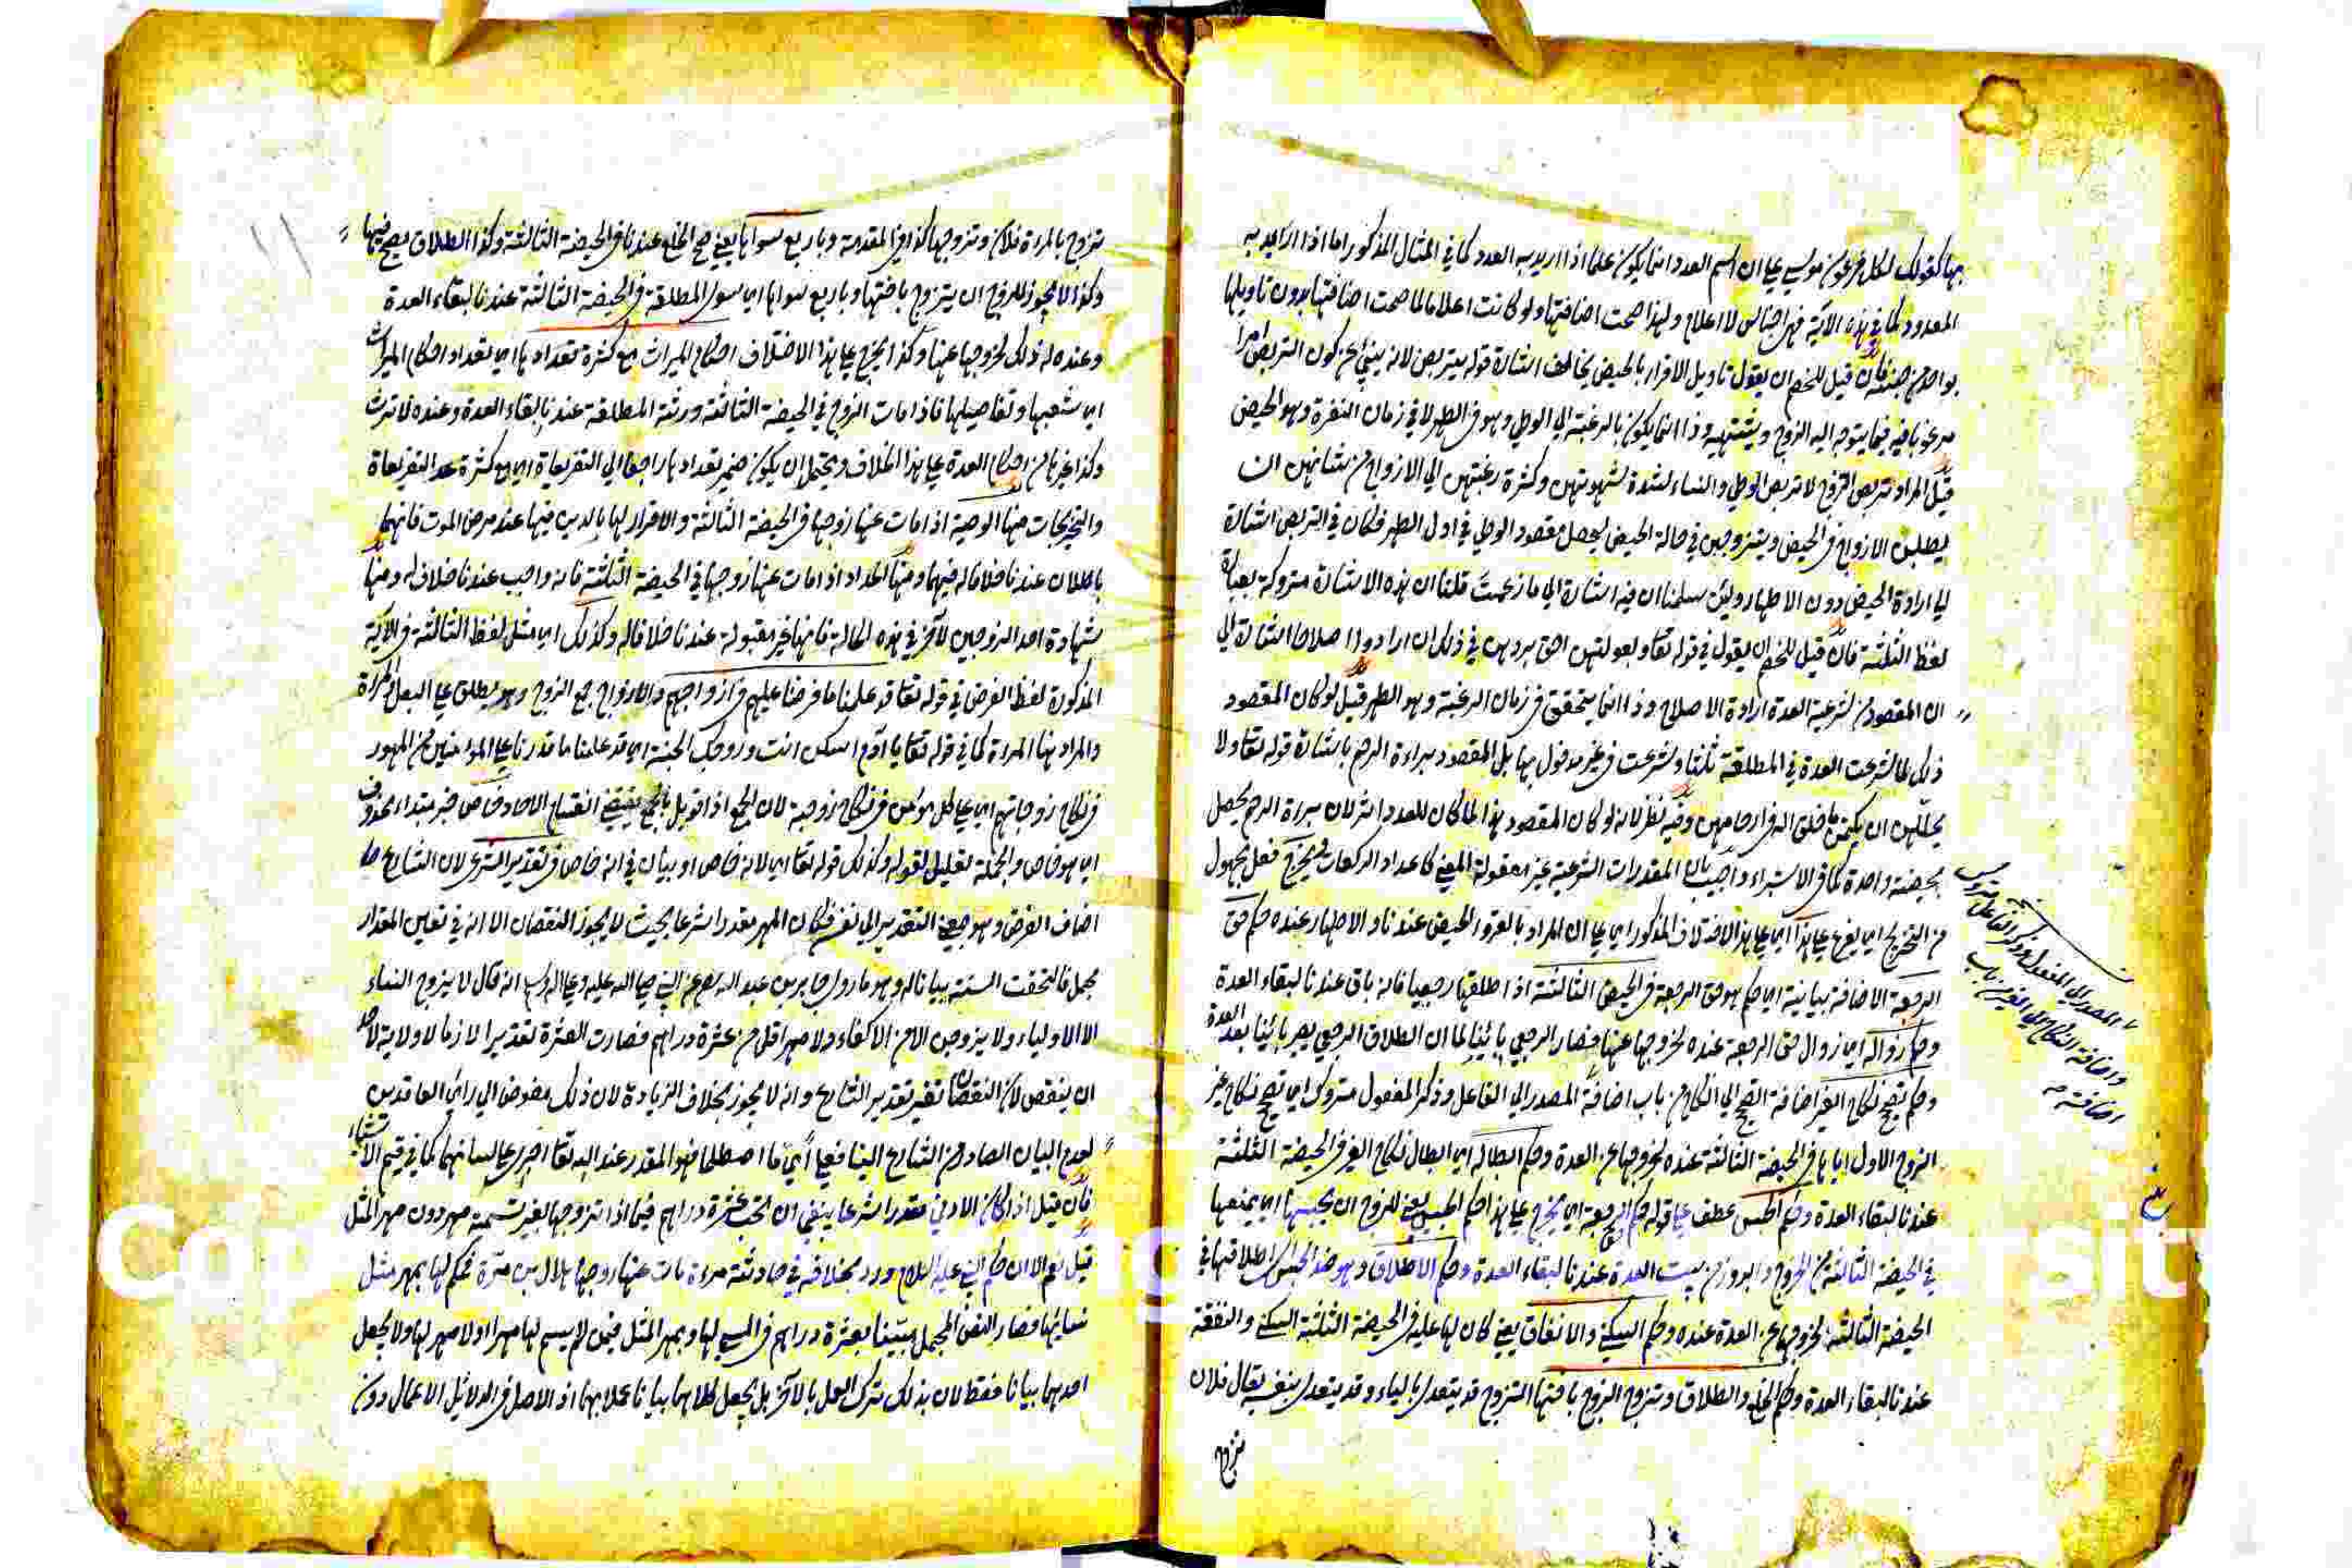 بها كقولك لكل فرعون موسى على ان اسم العدد انما يكون علما اذا اريد به العدد كما في المثال المذكور اما اذا اريد به
المعدود كما في هذه الآية فهي اجناس لا اعلام ولهذا صحت اضافتها ولو كانت اعلاما لما صحت اضافتها بدون تاويلها
بواحد من جنسه فان قيل للخصم ان يقول تاويل الاقراء بالحيض يخالف اشارة قوله يتربصن لانه ينبئ عن كون التربص امرا
مرغوبا فيه فيما يتوجه اليه الزوج ويشتهيه وذا انما يكون بالرغبة الى الوطي وهو في الطهر لا في زمان النفرة وهو الحيض
قيل المراد تربص التزوج لا تربص الوطي والنساء لشدة شهوتهن وكثرة رغبتهن الى الازواج من شانهن ان
يطلبن الازواج في الحيض ويتزوجن في حالة الحيض ليحصل مقصود الوطي في اول الطهر فكان في التربص اشارة
الى ارادة الحيض دون الاطهار ولئن سلمنا ان فيه اشارة الى ما زعمت قلنا ان هذه الاشارة متروكة بعبارة
لفظ الثلثة فان قيل للخصم ان يقول في قوله تعا وبعولتهن احق بردهن في ذلك ان ارادوا اصلاحا اشارة الى
ان المقصود من شرعية العدة ارادة الاصلاح وذا انما يتحقق في زمان الرغبة وهو الطهر قيل لو كان المقصود
ذلك لما شرعت العدة في المطلقة ثلثا وشرعت في غير مدخول بها بل المقصود براءة الرحم باشارة قوله تعا ولا
يحل لهن ان يكتمن ما خلق الله في ارحامهن وفيه نظر لانه لو كان المقصود هذا لما كان للعدد اثر لان براءة الرحم يحصل
بحيضة واحدة كما في الاستبراء واجيب بان المقدرات الشرعية غير معقولة المعنى كاعداد الركعات ويخرج فعل مجهول
من التخريج اي يفرع على هذا اي على هذا الاختلاف المذكور اي على ان المراد بالقروء الحيض عندنا والاطهار عنده حكم حق
الرجعة الاضافة بيانية اي حكم هو حق الرجعة في الحيض الثالثة اذا طلقها رجعيا فانه باق عندنا لبقاء العدة
وحكم زواله اي زوال حق الرجعة عنده لخروجها عنها فصار الرجعي بائنا لما ان الطلاق الرجعي يصير بائنا بعد العدة
وحكم تصحيح نكاح الغير اضافة التصحيح الى النكاح من باب اضافة المصدر الى الفاعل وذكر المفعول متروك اي تصحيح نكاح غير
الزوج الاول اياها في الحيضة الثالثة عنده لخروجها عن العدة وحكم ابطاله اي ابطال نكاح الغير في الحيضة الثلثة
عندنا لبقاء العدة وحكم الحبس عطف على قوله حكم الرجعة اي يخرج على هذا حكم الحبس يعني للزوج ان يحبسها اي يمنعها
في الحيضة الثالثة من الخروج والبروز من بيت العدة عندنا لبقاء العدة وحكم الاطلاق وهو ضد الحبس اي اطلاقها في
الحيضة الثالثة لخروجها عن العدة عنده وحكم السكنى والانفاق يعني كان لها عليه في الحيضة الثالثة السكنى والنفقة
عندنا لبقاء العدة وحكم الخلع والطلاق وتزوج الزوج باختها التزوج قد يتعدى بالباء وقد يتعدى بنفسه يقال فلان
تزوج
المصدر الى المفعول وذكر الفاعل متروك
واضافة النكاح الى الغير من باب
اضافته
تزوج بالمراة فلان وتزوجها كذا في المقدمة وباربع سواها يعني صح الخلع عندنا في الحيضة الثالثة وكذا الطلاق يصح فيها
وكذا لا يجوز للزوج ان يتزوج باختها وباربع سواها اي سوى المطلقة في الحيضة الثالثة عندنا لبقاء العدة
وعنده له ذلك لخروجها عنها وكذا يخرج على هذا الاختلاف احكام الميراث مع كثرة تعدادها اي تعداد احكام الميراث
اي شعبها وتفاصيلها فاذا مات الزوج في الحيضة الثالثة ورثة المطلقة عندنا لبقاء العدة وعنده لا ترث
وكذا غيرها من احكام العدة على هذا الخلاف ويحتمل ان يكون ضمير تعدادها راجعا الى التفريعاة اي مع كثرة عدد التفريعاة
والتخريجات منها الوصية اذا مات عنها زوجها في الحيضة الثالثة والاقرار لها بالدين فيها عند مرض الموت فانهما
باطلان عندنا خلافا له فيهما ومنها الحداد اذا مات عنها زوجها في الحيضة الثالثة فانه واجب عندنا خلافا له ومنها
شهادة احد الزوجين لآخر في هذه الحالة فانها غير مقبولة عندنا خلافا له وكذلك اي مثل لفظ الثالثة في الآية
المذكورة لفظ الفرض في قوله تعا قد علمنا ما فرضنا عليهم في ازواجهم والازواج جمع الزوج وهو يطلق على البعل والمراة
والمراد ههنا المراة كما في قوله تعا يا آدم اسكن انت وزوجك الجنة اي قد علمنا ما قدرنا على المؤمنين من المهور
في نكاح زوجاتهم اي على كل مؤمن في نكاح زوجية لان الجمع اذا قوبل بالجمع يقتضي انقسام الآحاد خاص خبر مبتداء محذوف
اي هو خاص والجملة تعليل لقوله وكذلك قوله تعا اي لانه خاص او بيان في انه خاص في تقدير الشرعي لان الشارع
اضاف الفرض وهو بمعنى التقدير الى نفسه فكان المهر مقدرا شرعا بحيث لا يجوز النقصان الا انه في تعيين المقدار
مجمل فالتحقت السنة بيانا له وهو ما روى جابر بن عبد الله رضي عن النبي صلى الله عليه وعلى اله وسلم انه قال لا يزوج النساء
الا الاولياء ولا يزوجن الا من الاكفاء ولا مهر اقل من عشرة دراهم فصارت العشرة تقديرا لازما لا ولاية لاحد
ان ينقص لان النقصان تغير تقدير الشارع وانه لا يجوز بخلاف الزيادة لان ذلك مفوض الى راي العاقدين
لعدم البيان الصادر من الشارع الينا فعلى اي ما اصطلحا فهو المقدر عند الله تعا اجرى على لسانهما كما في قيم الاشياء
فان قيل اذا كان الادنى مقدرا شرعا ينبغي ان تجب عشرة دراهم فيما اذا تزوجها بغير تسمية مهر دون مهر المثل
قيل نعم الا ان حكم النبي عليه السلام ورد بخلافه في حادثة مراة مات عنها زوجها هلال بن مرة فحكم لها بمهر مثل
نسائها فصار النص المجمل مبينا بعشرة دراهم في المسمى لها وبمهر المثل فيمن لم يسم لها مهرا او لا مهر لها ولا يجعل
احدهما بيانا فقط لان بذلك ترك العمل بالآخر بل يجعل كلاهما بيانا عملا بهما اذ الاصل في الدلائل الاعمال دون